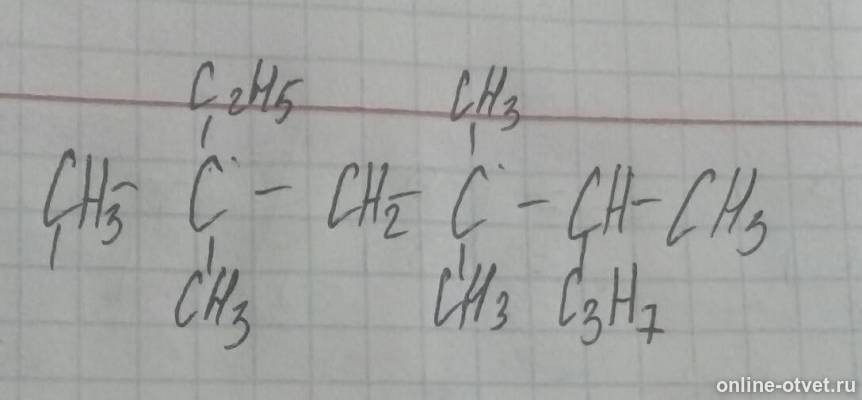 C2H5 CH3
CH3 - C - CH2 - C - CH - CH3
CH3 CH3 C3H7
online-otvet.ru